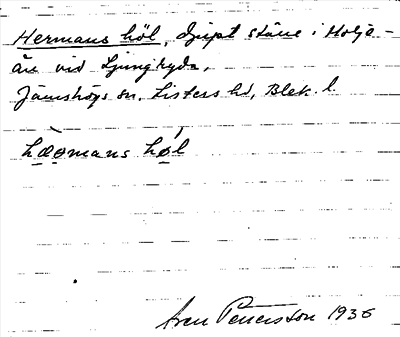 Hermans höl, djupt ställe i Holje-
ån vid Ljungryda,
Jämshögs sn. Listers hd, Blek. l.
hæ̀ɷmans hǿl
Sven Petersson 1936